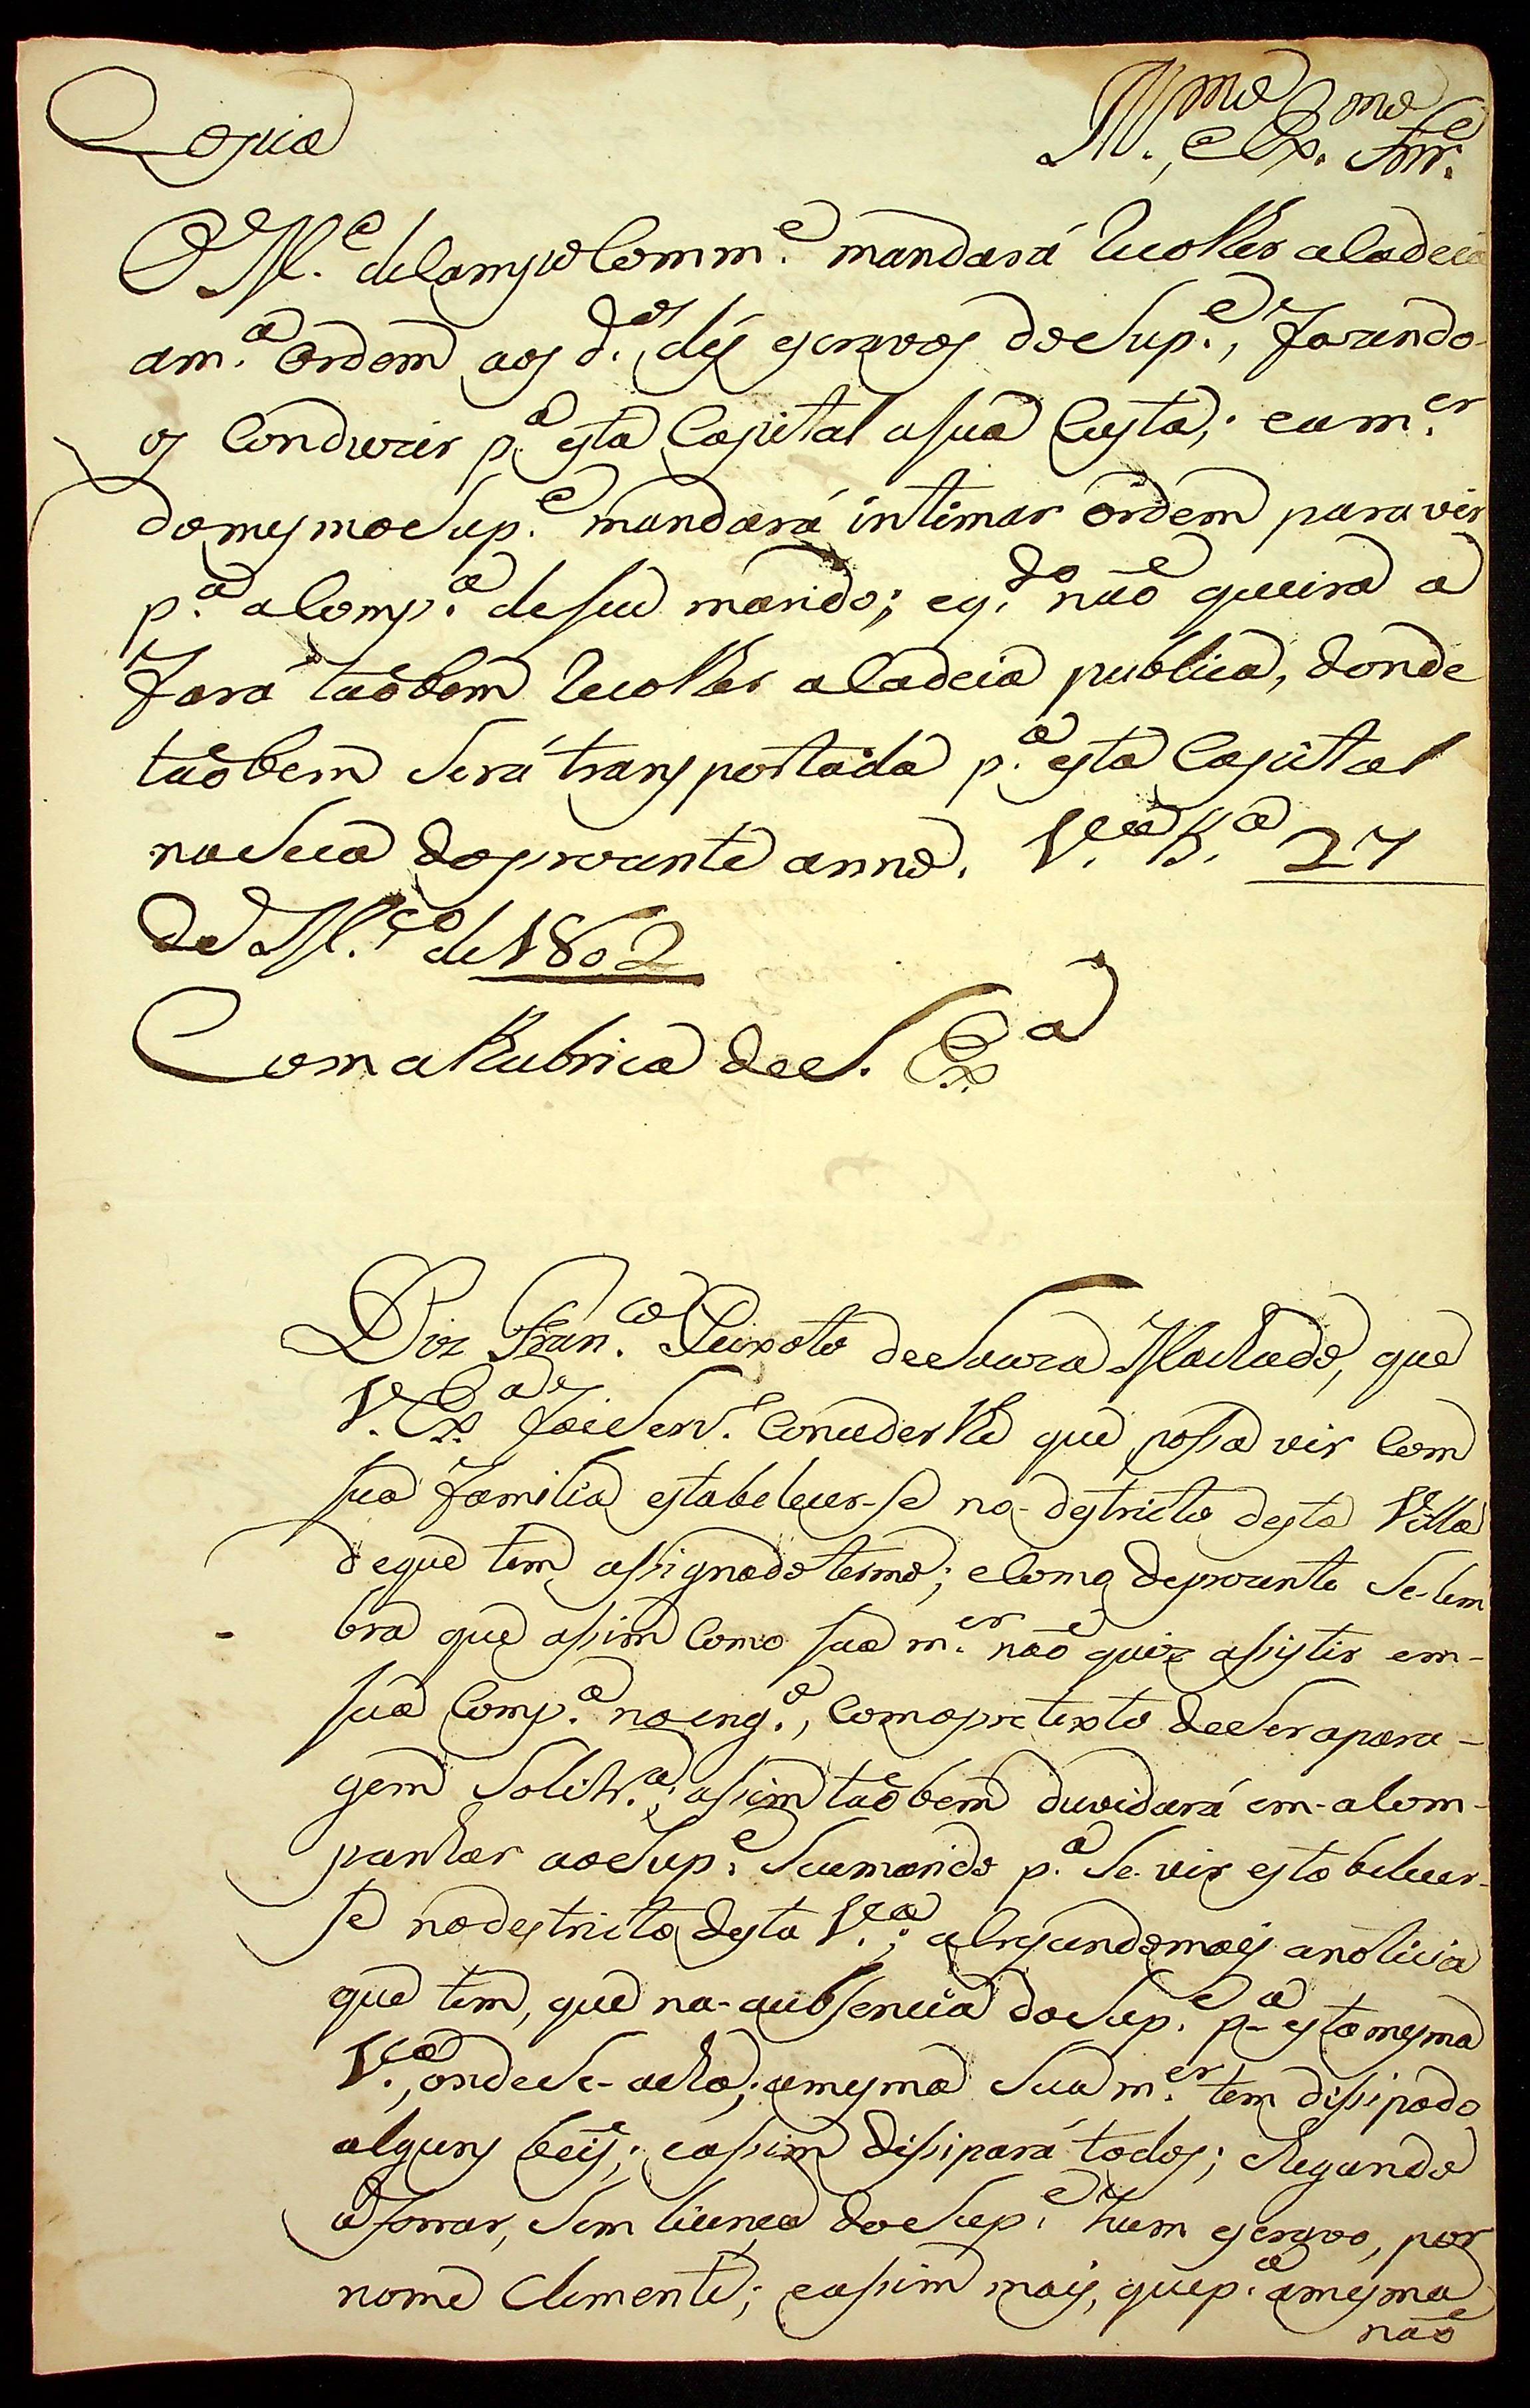 Copia
Ill.mo, e Ex.mo Snr.e
O M.e de Campo Comm.e mandará recolher a Cadeia
a m.a ordem aos d.os dés escravos do Sup.e, fazendo-
os Conduzir p.a esta Capital a sua Custa; e a m.er
do mesmo Sup.e mandará intimar ordem para vir
p.a a Comp.a de seu marido; e q.do não queira a
fará taõbem recolher a Cadeia publica, donde
taõbem Será transportada p.a esta Capital
na Seca do prezente anno. V.a B.a 27
de M.ço de 1802
Com a Rubrica de S. Ex.a
Diz Fran.co Peixoto de Souza Machado, que
V. Ex.a foi Serv.o Conceder lhe que possa vir Com
sua familia estabelecer-se no destricto desta Villa
de que tem assignado termo; e Como de prezente Se-lem
bra que assim Como sua m.er não quiz assistir em-
sua Comp.a no eng.o, Com o pretexto de Ser apara-
gem Solitr.a; assim taõbem duvidará em-acom-
panhar ao Sup.e Seu marido p.a Se-vir estabelecer-
se no destricto desta V.a; acresendo mais a noticia
que tem, que na-aubsencia do Sup.e p.a esta mesma
V.a, onde Se-acha; a mesma Sua m.er tem disipado
alguns beis; e assim disipará todos; chegando
a forrar, Sem licença do Sup.e hum escravo, por
nome Clemente; e assim mais, que p.a a mesma
não